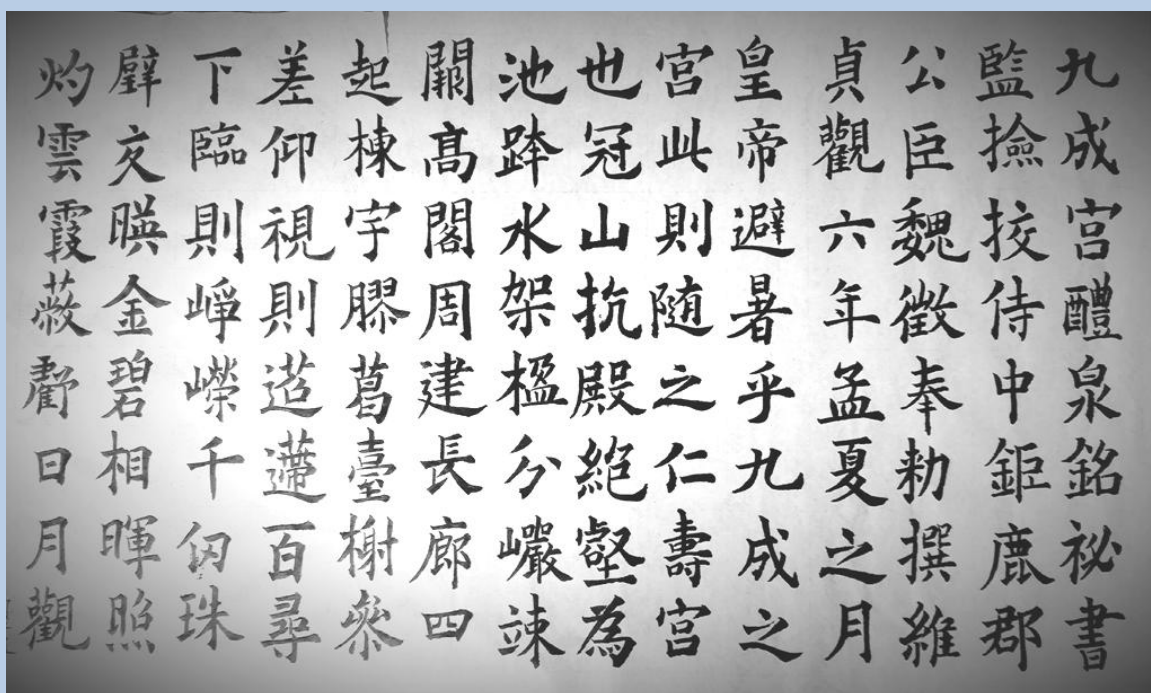 九成宮醴泉銘祕書
監撿挍侍中鉅鹿郡
公臣魏徵奉勑撰維
貞觀六年孟夏之月
皇帝避暑乎九成之
宮此則随之仁壽宮
也冠山抗殿絕壑為
池跨水架楹分巖竦
闕髙閣周建長廊四
起棟宇膠葛臺榭叅
差仰視則迢遰百尋
下臨則崢嶸千仞珠
壁交暎金碧相暉照
灼雲霞蔽虧日月觀